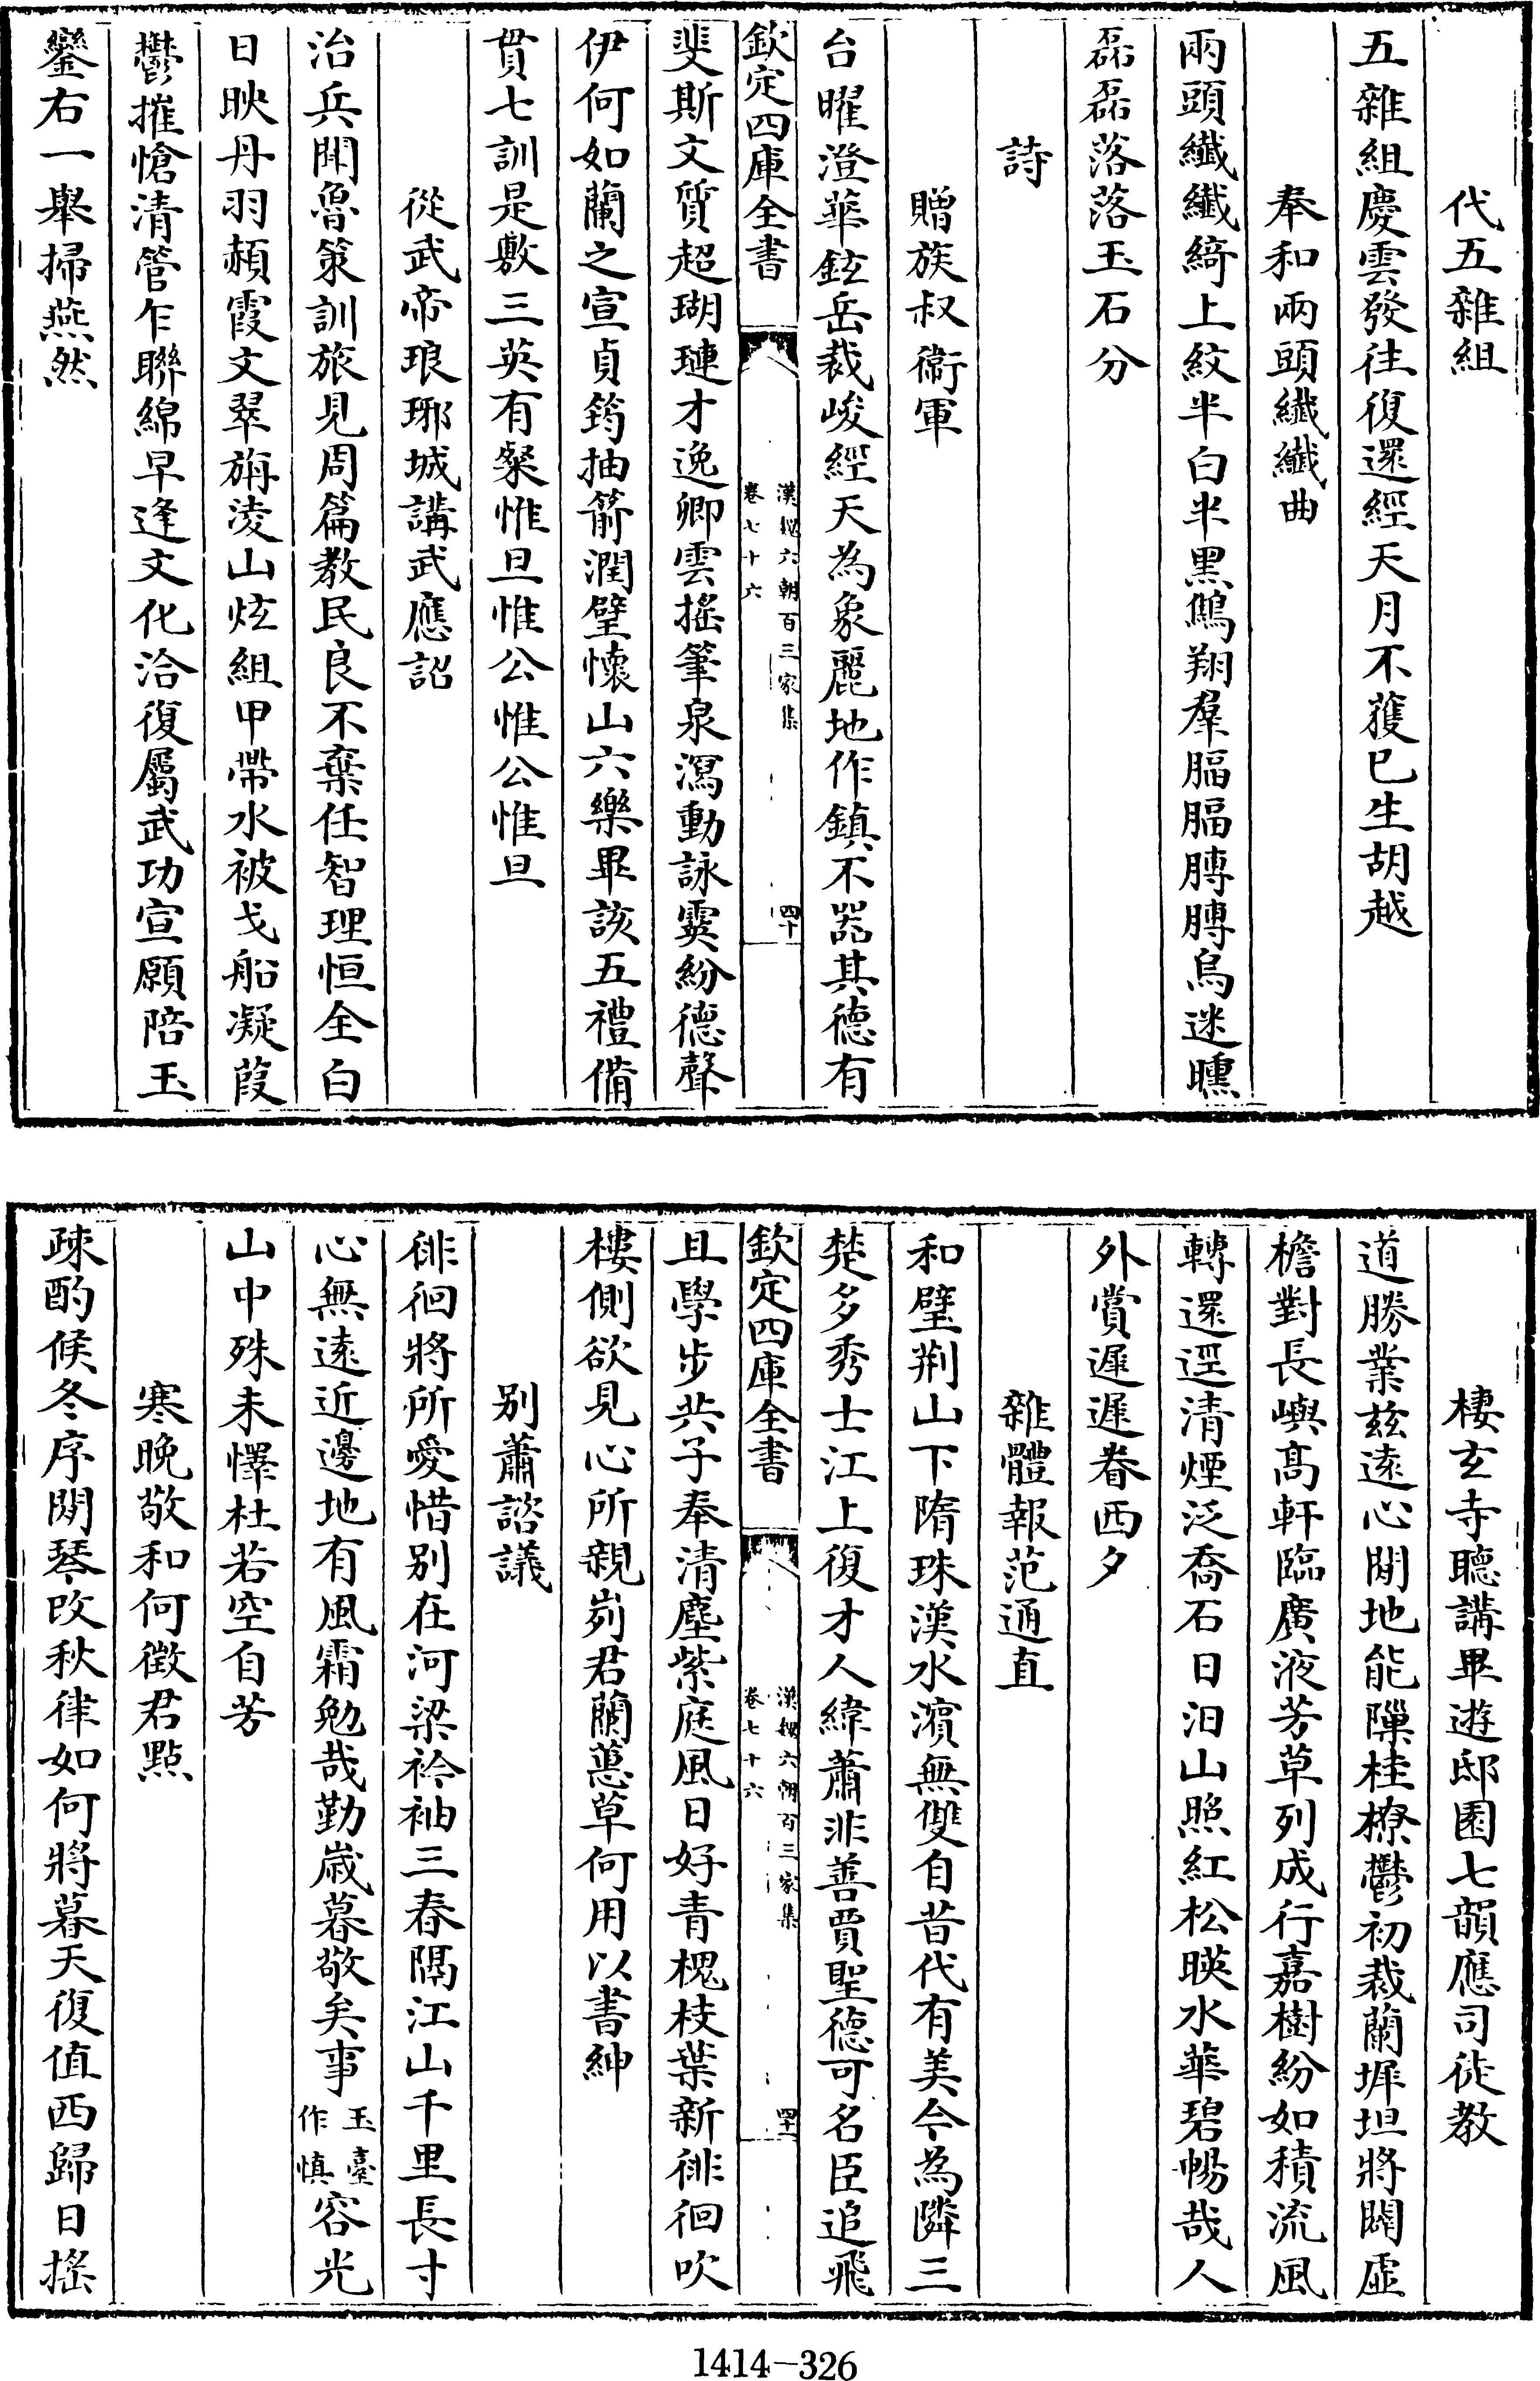 代五雜組
五雜組慶雲發往復還經天月不獲已生胡越
奉和兩頭纖纖曲
兩頭纖纖綺上紋半白半黑鷦翔羣腷腷膊膊烏迷曛
磊磊落落玉石分
詩
贈族叔衞軍
台曜澄華鉉岳裁峻經天為象麗地作鎮不器其德有
欽定四庫全書
漢魏六朝百三家集
卷七十六
四十
斐斯文質超瑚璉才逸卿雲搖筆泉瀉動詠雲紛德聲
伊何如蘭之宣貞筠抽箭潤璧懷山六樂畢該五禮備
貫七訓是敷三英有粲惟旦惟公惟公惟旦
從武帝琅琊城講武應詔
治兵聞魯策訓旅見周篇教民良不棄任智理恒全白
日映丹羽赬霞文翠旃淩山炫組甲帶水被戈船凝葭
鬱摧愴清管乍聯綿早逢文化洽復屬武功宣願陪玉
鑾右一舉掃燕然
棲玄寺聽講畢遊邸園七韻應司徒教
道勝業茲遠心閒地能隟桂橑鬱初裁蘭墀坦將闢虛
檐對長嶼髙軒臨廣液芳草列成行嘉樹紛如積流風
轉還逕清煙泛喬石日汨山照紅松暎水華碧暢哉人
外賞遲遲眷西夕
雜體報范通直
和璧荆山下隋珠漢水濱無雙自昔代有美今為隣三
楚多秀士江上復才人緯蕭非善賈聖德可名臣追飛
欽定四庫全書
漢魏六朝百三家集
卷七十六
四十一
且學步共子奉清塵紫庭風日好青槐枝葉新徘徊吹
樓側欲見心所親峛君蘭蕙草何用以書紳
别蕭諮議
徘徊將所愛惜别在河梁衿袖三春隔江山千里長寸
心無遠近邊地有風霜勉哉勤嵗暮敬矣事玉臺作慎容光
山中殊未懌杜若空自芳
寒晚敬和何徵君點
疎酌候冬序閒琴改秋律如何將暮天復值西歸日搖
1414-326